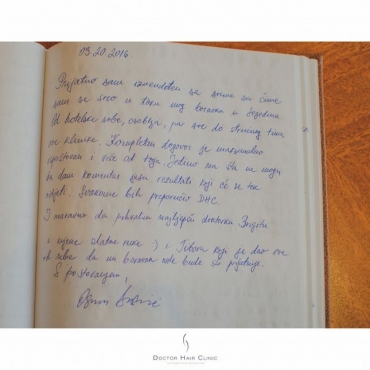 09.20.2016.
Prijatno sam iznenađen sa svime sa čime
sam se sreo u toku mog boravka u Segedinu
Od hotelske sobe, osoblja, pa sve do stručnog tima
sve klinike. Kompletan dogovor je maksimalno
ispoštovan i više od toga. Jedino na šta ne mogu
da dam komentar jesu rezultati koji će se tek
vidjeti. Svakome bih preporučio DHC.
I naravno da pohvalim najljepšu doktorku Brigitu
i njene zlatne ruke :) i Tibora koji je dao sve
od sebe da mi boravak ovde bude što prijatniji.
S poštovanjem,
DOCTOR HAIR CLINIC